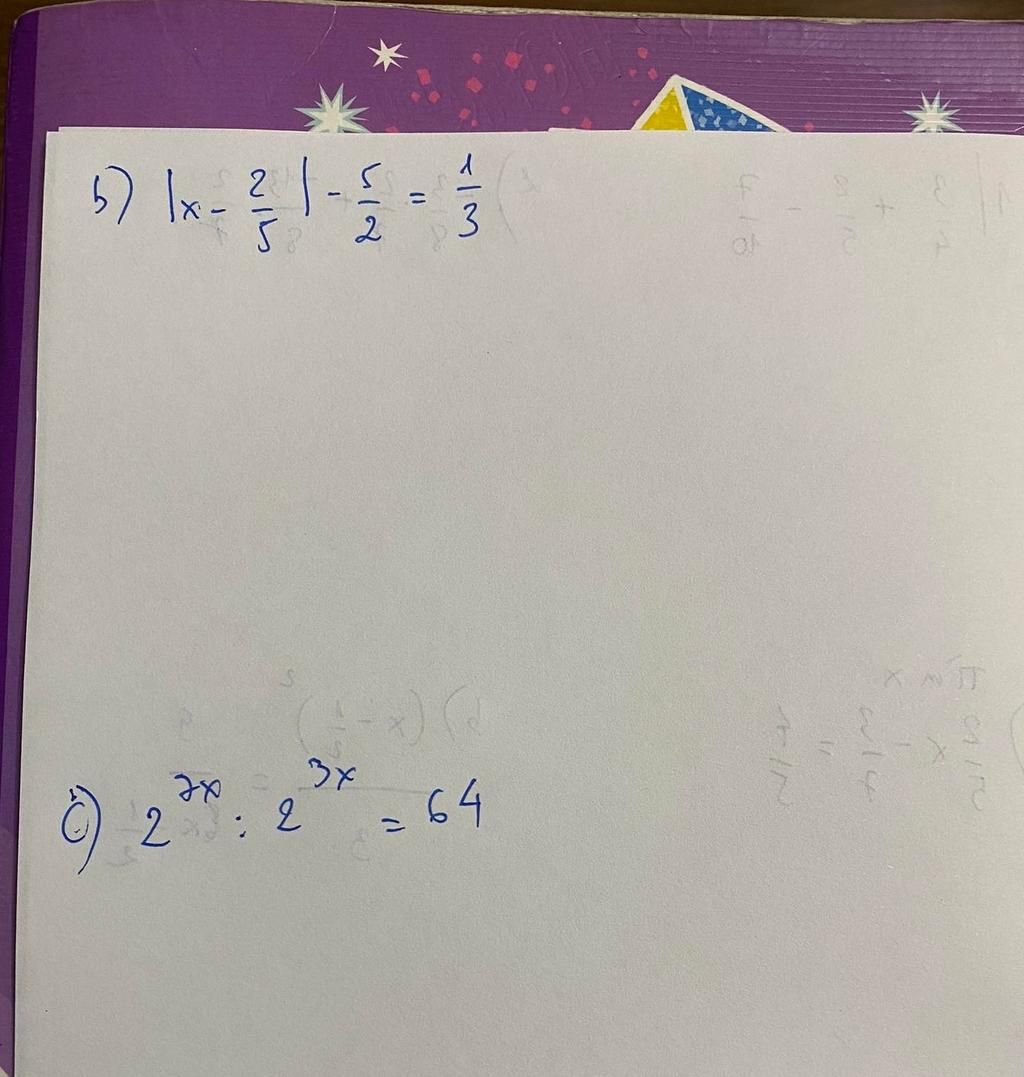 b) |x - 2/5| - 5/2 = 1/3
c) 2^{7x} : 2^{3x} = 64